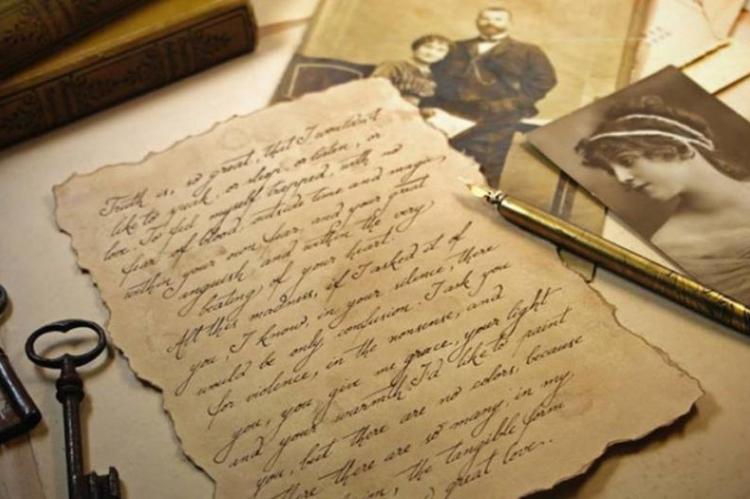 Truth is, so great, that I wouldn't
like to speak, or sleep, or listen, or
love. To feel myself trapped, with no
fear of blood, outside time and magic,
within your own fear, and your great
anguish, and within the very
beating of your heart.
All this madness, if I asked it of
you, I know, in your silence, there
would be only confusion. I ask you
for violence, in the nonsense, and
you, you give me grace, your light
and your warmth. I'd like to paint
you, but there are no colors, because
there are so many, in my
in, the tangible form
great love..